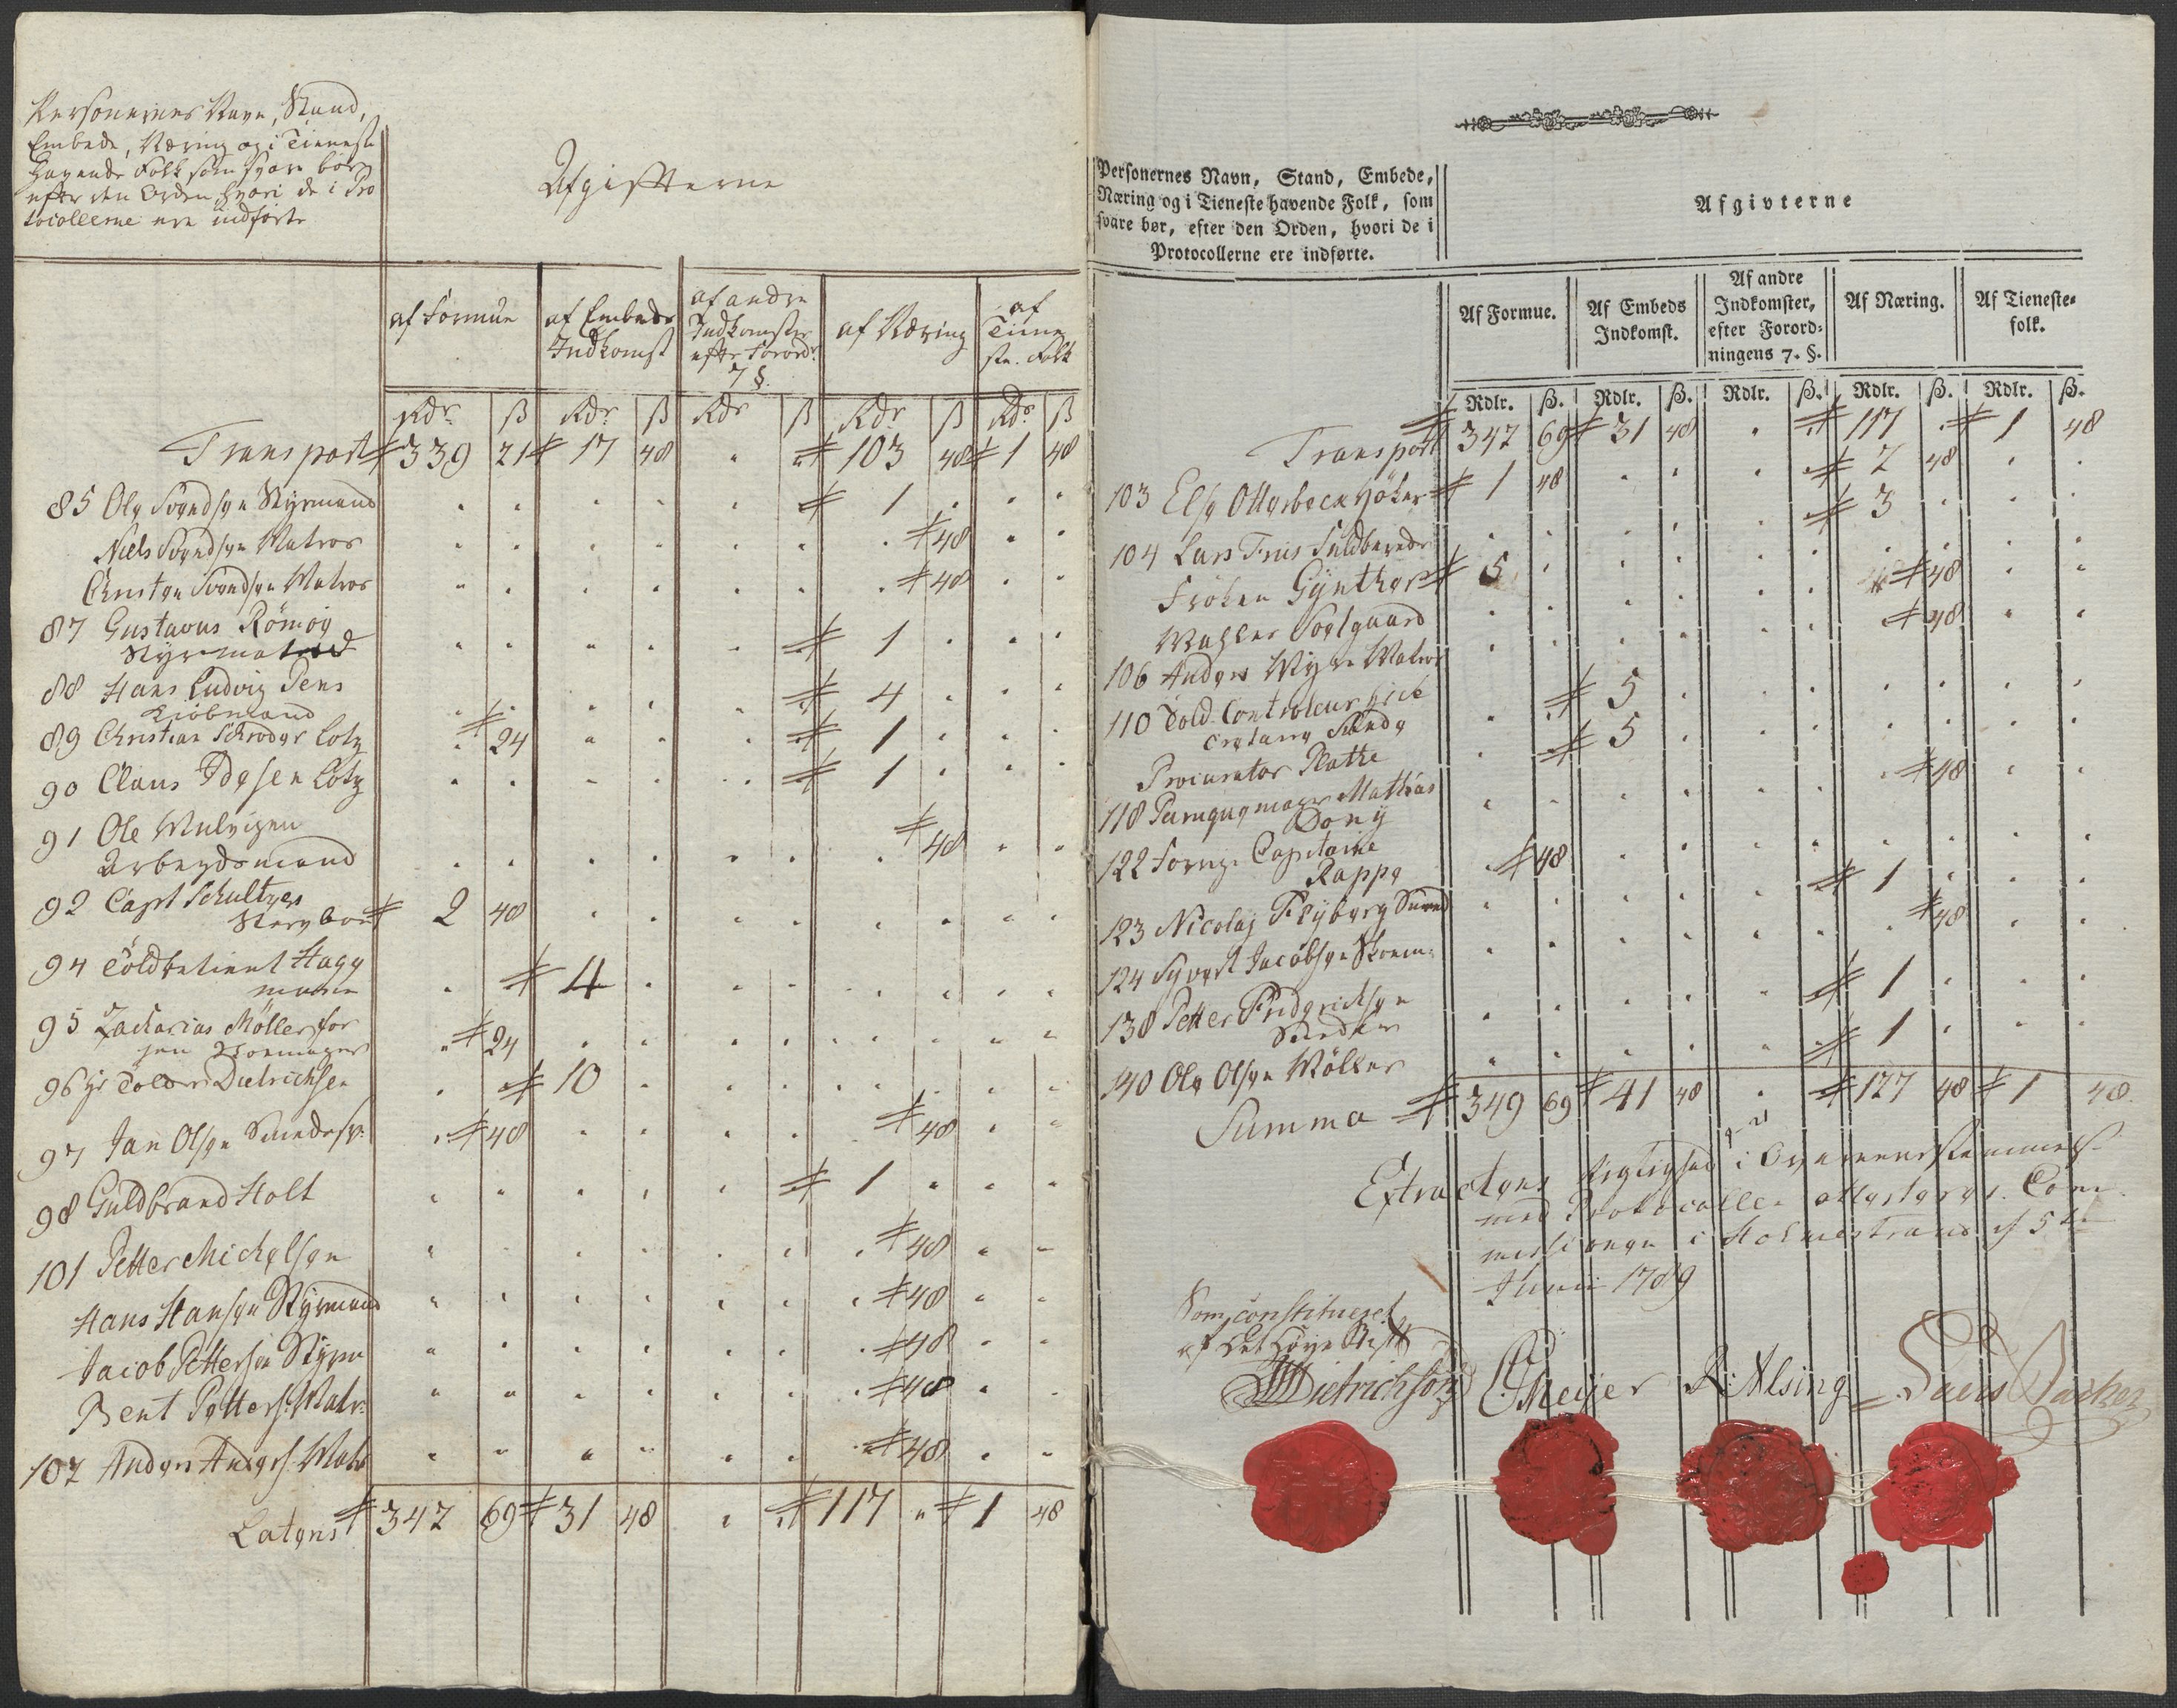 Personernes Navn, Stand,
Embede, Næring og i Tieneste
havende Folk som svare bør
efter den Orden hvori de i Pro
tocollerne ere indførte
Afgifterne
af Formue
af Embeds
Indkomst
af andre
Indkomster
efter Forordn.
7 §
af Næring
af
Tiene
ste Folk
Rdr ß Rdr ß Rdr ß Rdr ß Rdr ß
Transport 339 21 17 48 " " 103 48 1 48
85 Ole Svendsen Styrmand " " " " " " 1 " " "
Niels Svendsen Matros " " " " " " " 48 " "
Christen Svendsen Matros " " " " " " " 48 " "
87 Gustavus Römöy
Styrmand " " " " " " 1 " " "
88 Hans Ludvig Jens
Kiöbmand " " " " " " 4 " " "
89 Christian Schrøder Lotz " 24 " " " " 1 " " "
90 Claus Idesen Lotz " " " " " " 1 " " "
91 Ole Mulvigen
Arbeydsmand " " " " " " " 48 " "
92 Capt Schultzes
Stervboe 2 48 " " " " " " " "
94 Toldbetient Hage
mann " " 4 " " " " " " "
95 Zacharias Møller for
sen Skoemager " 24 " " " " " " " "
96 Hr Tolder Dietrichsen " " 10 " " " " " " "
97 Jan Olsen Smedesv. " 48 " " " " " 48 " "
98 Guldbrand Holt " " " " " " 1 " " "
101 Petter Michelsen " " " " " " " 48 " "
Hans Hansen Styrmand " " " " " " " 48 " "
Jacob Pettersen Styrm " " " " " " " 48 " "
Bent Petters. Matr. " " " " " " " 48 " "
102 Anders Anders. Matr " " " " " " " 48 " "
Lateris 342 69 31 48 " " 117 " 1 48
Personernes Navn, Stand, Embede,
Næring og i Tieneste havende Folk, som
svare bør, efter den Orden, hvori de i
Protocollerne ere indførte.
Afgivterne
Af Formue.
Af Embeds
Indkomst.
Af andre
Indkomster,
efter Forord-
ningens 7. §.
Af Næring.
Af Tieneste-
folk.
Rdlr. ß. Rdlr. ß. Rdlr. ß. Rdlr. ß. Rdlr. ß.
Transport 342 69 31 48 " " 117 " 1 48
103 Else Otterbeck Höker 1 48 " " " " 2 48 " "
104 Lars Friis " " " " " " 3 " " "
Fröken Gynther 5 " " " " " " " " "
Mahler Soelgaard " " " " " " " 48 " "
106 Anders Myre Matros " " " " " " " 48 " "
110 Told Controleur
Sundg " " 5 " " " " " " "
Procurator Plathe " " 5 " " " " " " "
118 Mathias
Dony " " " " " " " 48 " "
122 Forrige Capitaine
Rappe " 48 " " " " " " " "
123 Nicolaj Flyberg " " " " " " 1 " " "
124 Syvert Jacobsen Skoem: " " " " " " " 48 " "
138 Petter Fridrichsen
Snedker " " " " " " 1 " " "
140 Ole Olsen Möller " " " " " " 1 " " "
Summa 349 69 41 48 " " 127 48 1 48.
Extractens Rigtighed i Overeensstemmelse
med Protocollen attesterer. Com-
missionen i Holmestrand d 5te
Junii 1789
Som constitueret
af Det Høye Stift
Dietrichson CMeyer R: Alsing Lauis Backer